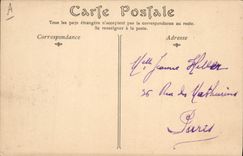 A
Carte Postale
Tous les pays étrangers n'acceptent pas la correspondance au recto.
Se renseigner à la poste.
Correspondance
Adresse
Mlle Jeanne
36 Rue des Mathurins
Paris